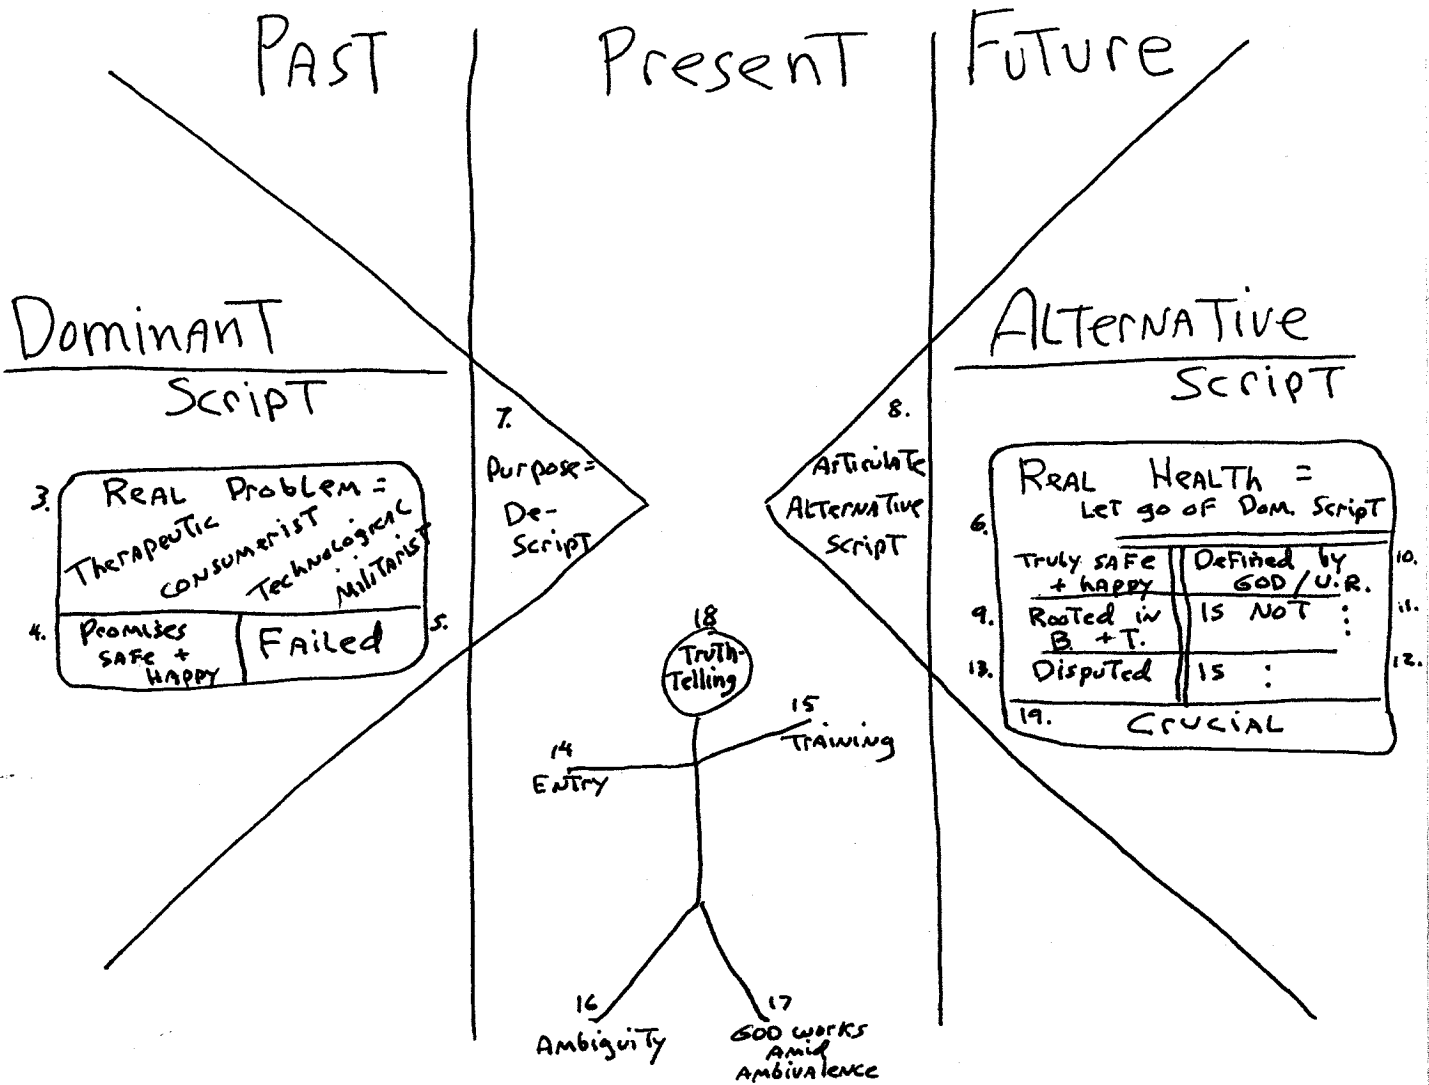 Past
Present
Future
Dominant
Script
3.
Real Problem =
Therapeutic
Consumerist
Technological
Militarist
4.
Promises
safe +
happy
5.
Failed
7.
Purpose =
De-
Script
8.
Articulate
Alternative
Script
Alternative
Script
Real Health =
Let go of Dom. Script
6.
Truly safe
+ happy
Defined by
GOD / U.R.
10.
9.
Rooted in
B. + T.
is NOT :
11.
13.
Disputed
is :
12.
19.
Crucial
18
Truth-
Telling
14
Entry
15
Training
16
Ambiguity
17
GOD works
Amid
Ambivalence